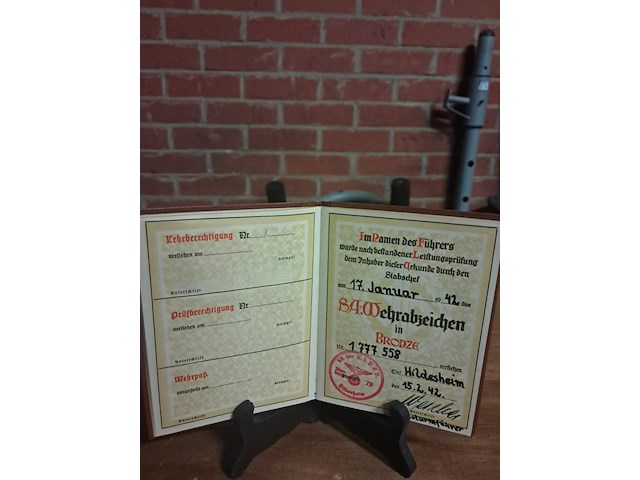 Lehrberechtigung Nr.
verliehen am
Stempel
Unterschrift
Prüfberechtigung Nr.
verliehen am
Stempel
Unterschrift
Wehrpaß
ausgestellt am
Stempel
Unterschrift
Im Namen des Führers
wurde nach bestandener Leistungsprüfung
dem Inhaber dieser Urkunde durch den
Stabschef
am 17. Januar 1942 das
SA.Wehrabzeichen
in
BRONZE
Nr. 1 777 558 verliehen
Hildesheim
den 15.2.42.
Unterschrift
79
Hildesheim